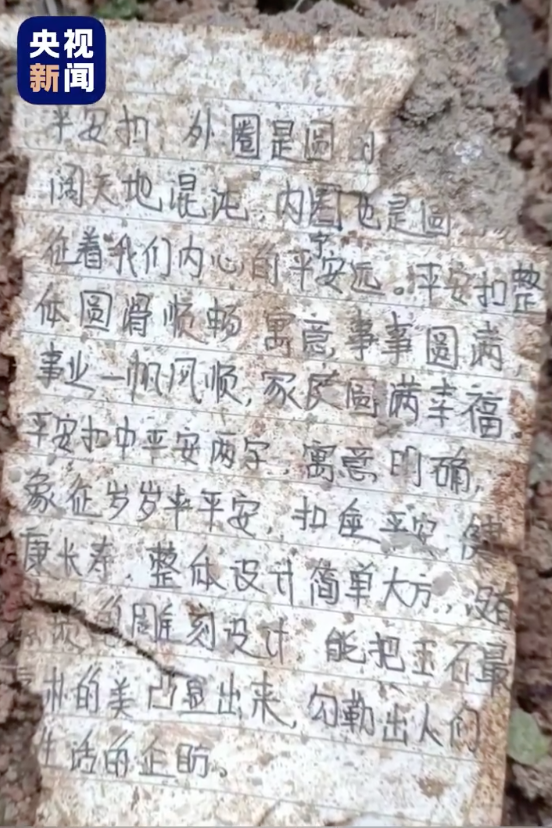 央视
新闻
平安扣，外圈是圆
阔天地混沌，内圈也是圆
征着我们内心的平安宁远。平安扣整
体圆滑顺畅 寓意事事圆满，
事业一帆风顺，家庭圆满幸福。
平安扣中平安两字，寓意明确，
象征岁岁年平安，扣座平安，健
康长寿，整体设计简单大方，没有
雕刻设计，能把玉石最
的美凸显出来，勾勒出人们
生活的企盼。